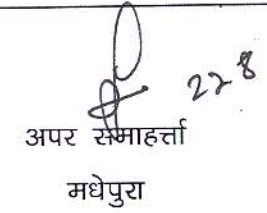 22 8
अपर समाहर्त्ता
मधेपुरा